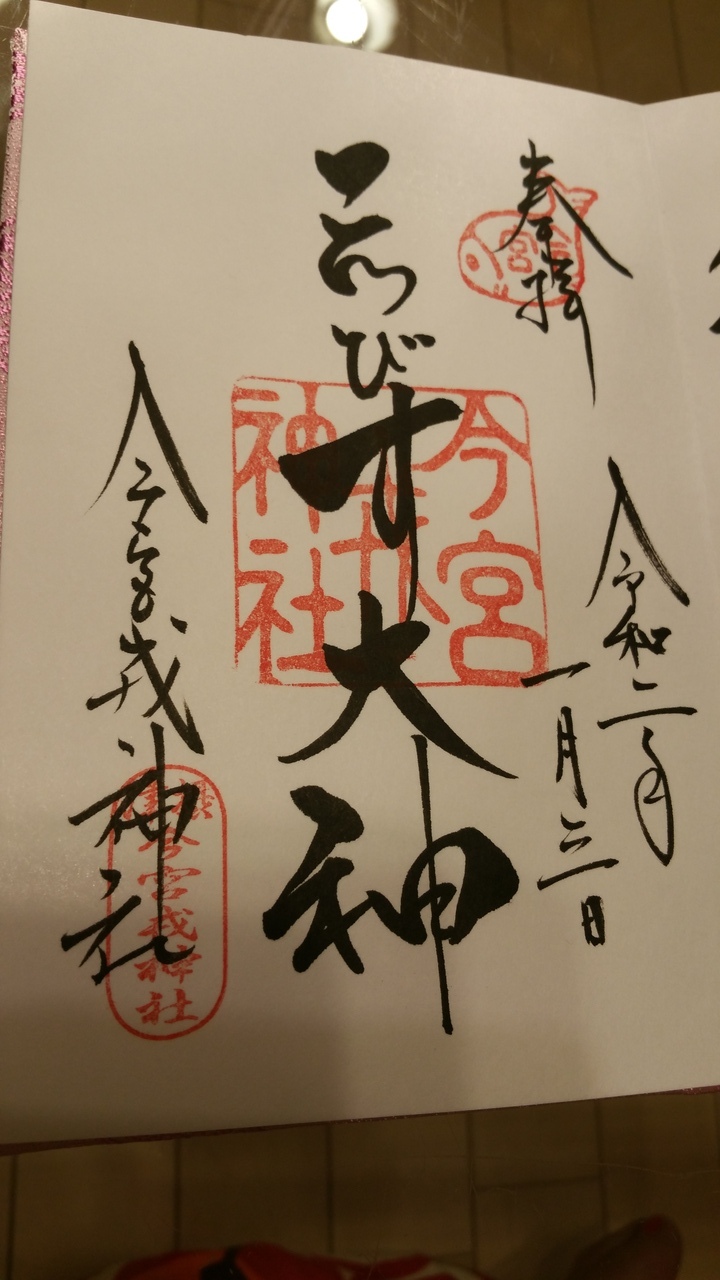 奉拝
今宮
令和二年
一月三日
ゑびす大神
今宮戎神社
今宮戎神社
今宮戎神社